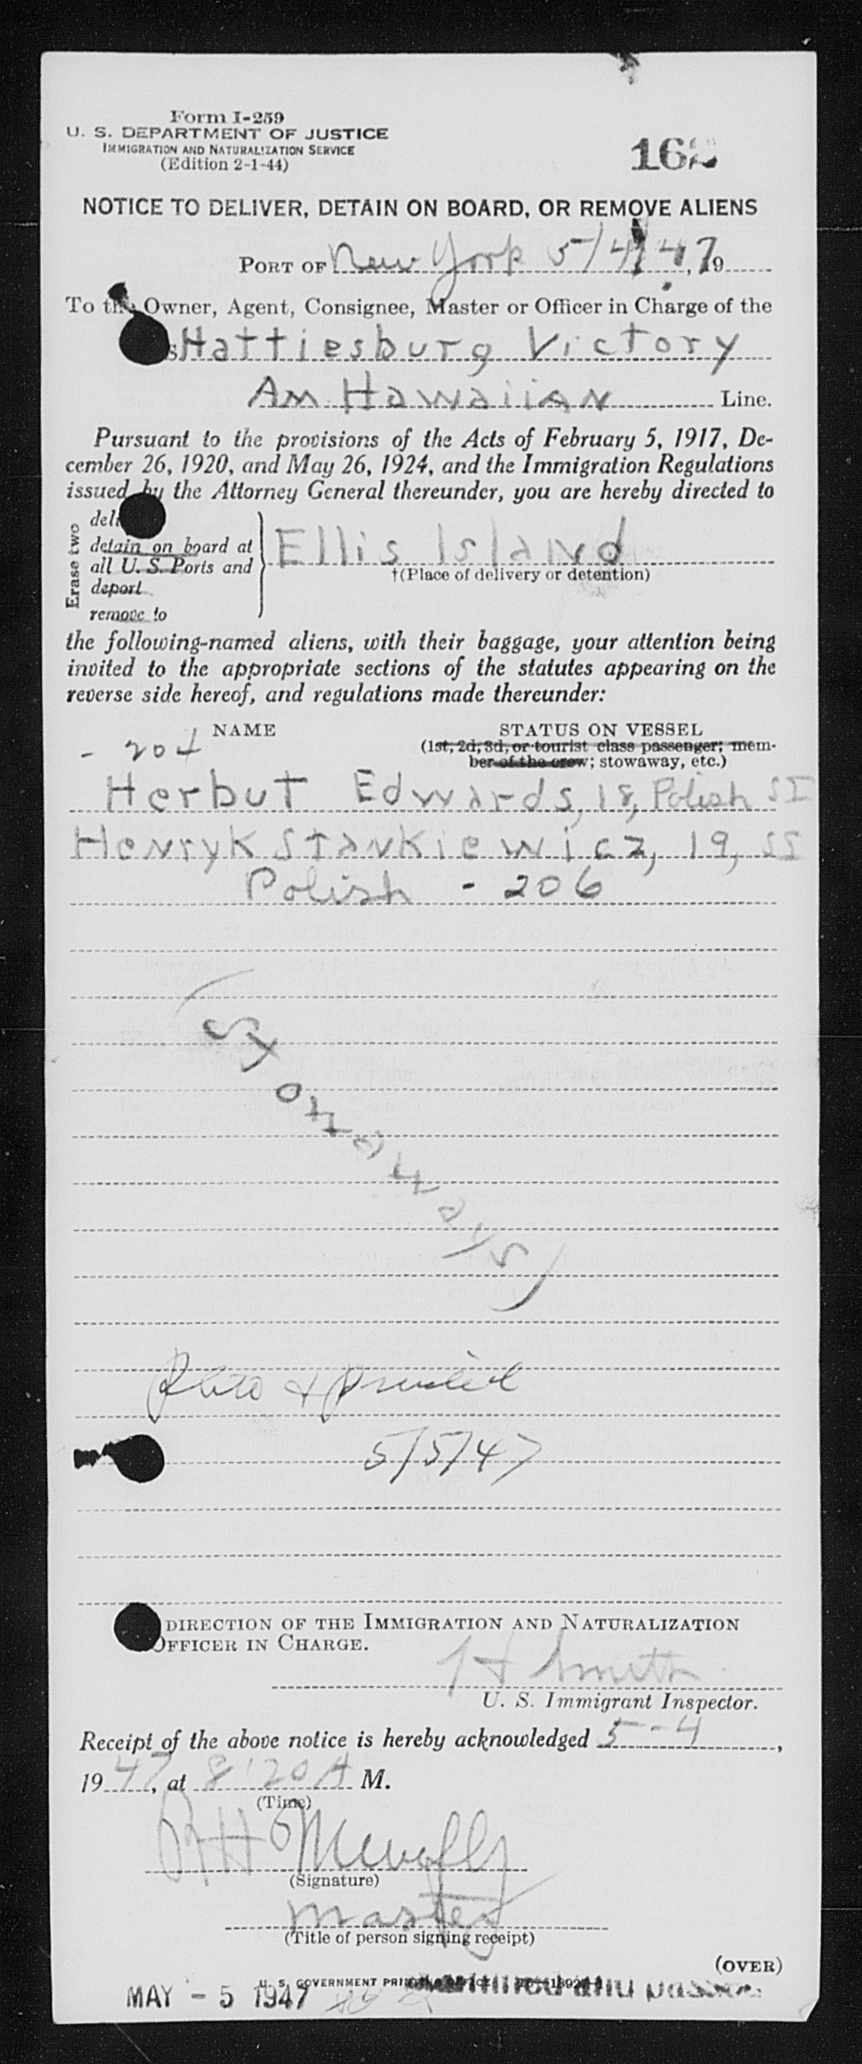 Form I-259
U. S. DEPARTMENT OF JUSTICE
IMMIGRATION AND NATURALIZATION SERVICE
(Edition 2-1-44)
162
NOTICE TO DELIVER, DETAIN ON BOARD, OR REMOVE ALIENS
PORT OF New York 5/4/47, 19
To the Owner, Agent, Consignee, Master or Officer in Charge of the
Hattiesburg Victory
Am Hawaiian Line.
Pursuant to the provisions of the Acts of February 5, 1917, De-
cember 26, 1920, and May 26, 1924, and the Immigration Regulations
issued by the Attorney General thereunder, you are hereby directed to
Erase two
detain on board at
all U. S. Ports and
deport
remove to
Ellis Island
†(Place of delivery or detention)
the following-named aliens, with their baggage, your attention being
invited to the appropriate sections of the statutes appearing on the
reverse side hereof, and regulations made thereunder:
NAME STATUS ON VESSEL
- 204 (1st, 2d, 3d, or tourist class passenger; mem-
ber of the crew; stowaway, etc.)
Herbut Edwards, 18, Polish
Henryk Stankiewicz, 19,
Polish - 206
(Stowaways)
Photo &
5/5/47
DIRECTION OF THE IMMIGRATION AND NATURALIZATION
OFFICER IN CHARGE.
Smith
U. S. Immigrant Inspector.
Receipt of the above notice is hereby acknowledged 5-4,
1947, at 8:20 A M.
(Time)
(Signature)
Master
(Title of person signing receipt)
(OVER)
U. S. GOVERNMENT
MAY - 5 1947